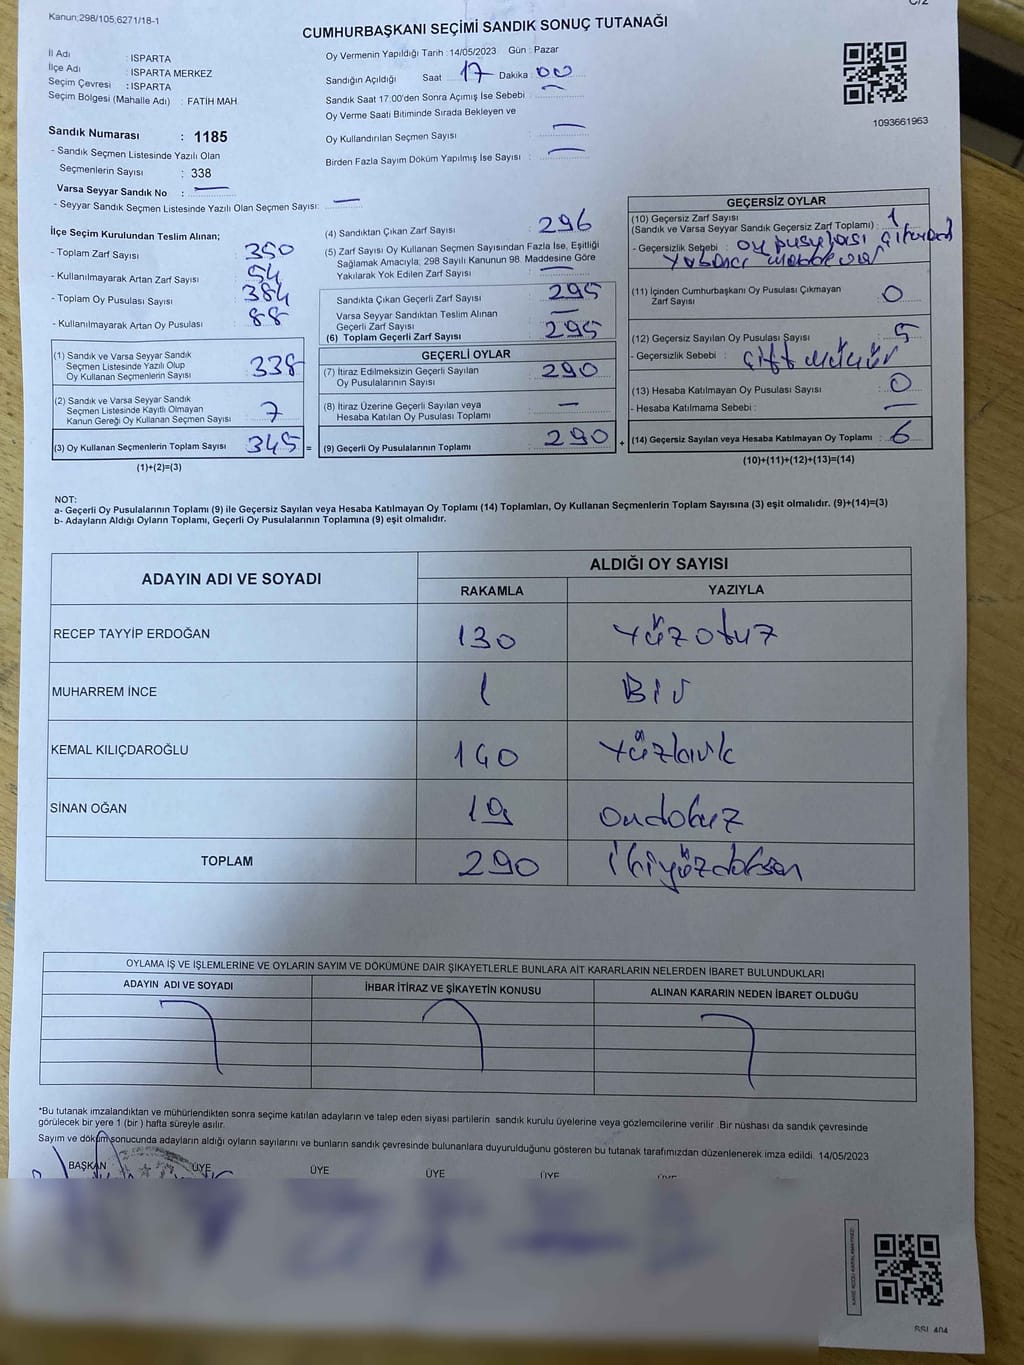 Kanun:298/105,6271/18-1
C/2
CUMHURBAŞKANI SEÇİMİ SANDIK SONUÇ TUTANAĞI
İl Adı : ISPARTA
İlçe Adı : ISPARTA MERKEZ
Seçim Çevresi : ISPARTA
Seçim Bölgesi (Mahalle Adı) : FATİH MAH
Sandık Numarası : 1185
- Sandık Seçmen Listesinde Yazılı Olan
Seçmenlerin Sayısı : 338
Varsa Seyyar Sandık No : —
- Seyyar Sandık Seçmen Listesinde Yazılı Olan Seçmen Sayısı: —
Oy Vermenin Yapıldığı Tarih : 14/05/2023 Gün : Pazar
Sandığın Açıldığı Saat 17 Dakika : 00
Sandık Saat 17:00'den Sonra Açımış İse Sebebi : —
Oy Verme Saati Bitiminde Sırada Bekleyen ve
Oy Kullandırılan Seçmen Sayısı : —
Birden Fazla Sayım Döküm Yapılmış İse Sayısı : —
1093661963
İlçe Seçim Kurulundan Teslim Alınan;
- Toplam Zarf Sayısı : 350
- Kullanılmayarak Artan Zarf Sayısı : 54
- Toplam Oy Pusulası Sayısı : 384
- Kullanılmayarak Artan Oy Pusulası : 88
(1) Sandık ve Varsa Seyyar Sandık
Seçmen Listesinde Yazılı Olup
Oy Kullanan Seçmenlerin Sayısı : 338
(2) Sandık ve Varsa Seyyar Sandık
Seçmen Listesinde Kayıtlı Olmayan
Kanun Gereği Oy Kullanan Seçmen Sayısı : 7
(3) Oy Kullanan Seçmenlerin Toplam Sayısı : 345 =
(1)+(2)=(3)
(4) Sandıktan Çıkan Zarf Sayısı : 296
(5) Zarf Sayısı Oy Kullanan Seçmen Sayısından Fazla İse, Eşitliği
Sağlamak Amacıyla, 298 Sayılı Kanunun 98. Maddesine Göre
Yakılarak Yok Edilen Zarf Sayısı : —
Sandıkta Çıkan Geçerli Zarf Sayısı : 295
Varsa Seyyar Sandıktan Teslim Alınan
Geçerli Zarf Sayısı : —
(6) Toplam Geçerli Zarf Sayısı : 295
GEÇERLİ OYLAR
(7) İtiraz Edilmeksizin Geçerli Sayılan
Oy Pusulalarının Sayısı : 290
(8) İtiraz Üzerine Geçerli Sayılan veya
Hesaba Katılan Oy Pusulası Toplamı : —
(9) Geçerli Oy Pusulalarının Toplamı : 290 +
GEÇERSİZ OYLAR
(10) Geçersiz Zarf Sayısı
(Sandık ve Varsa Seyyar Sandık Geçersiz Zarf Toplamı) : 1
- Geçersizlik Sebebi : oy pusulası
Yabancı
(11) İçinden Cumhurbaşkanı Oy Pusulası Çıkmayan
Zarf Sayısı : 0
(12) Geçersiz Sayılan Oy Pusulası Sayısı : 5
- Geçersizlik Sebebi : çift mühür
(13) Hesaba Katılmayan Oy Pusulası Sayısı : 0
- Hesaba Katılmama Sebebi : —
(14) Geçersiz Sayılan veya Hesaba Katılmayan Oy Toplamı : 6
(10)+(11)+(12)+(13)=(14)
NOT:
a- Geçerli Oy Pusulalarının Toplamı (9) ile Geçersiz Sayılan veya Hesaba Katılmayan Oy Toplamı (14) Toplamları, Oy Kullanan Seçmenlerin Toplam Sayısına (3) eşit olmalıdır. (9)+(14)=(3)
b- Adayların Aldığı Oyların Toplamı, Geçerli Oy Pusulalarının Toplamına (9) eşit olmalıdır.
ADAYIN ADI VE SOYADI
ALDIĞI OY SAYISI
RAKAMLA YAZIYLA
RECEP TAYYİP ERDOĞAN 130 Yüzotuz
MUHARREM İNCE 1 Bir
KEMAL KILIÇDAROĞLU 140 Yüzkırk
SİNAN OĞAN 19 ondokuz
TOPLAM 290 ikiyüzdoksan
OYLAMA İŞ VE İŞLEMLERİNE VE OYLARIN SAYIM VE DÖKÜMÜNE DAİR ŞİKAYETLERLE BUNLARA AİT KARARLARIN NELERDEN İBARET BULUNDUKLARI
ADAYIN ADI VE SOYADI İHBAR İTİRAZ VE ŞİKAYETİN KONUSU ALINAN KARARIN NEDEN İBARET OLDUĞU
*Bu tutanak imzalandıktan ve mühürlendikten sonra seçime katılan adayların ve talep eden siyasi partilerin sandık kurulu üyelerine veya gözlemcilerine verilir .Bir nüshası da sandık çevresinde
görülecek bir yere 1 (bir ) hafta süreyle asılır.
Sayım ve döküm sonucunda adayların aldığı oyların sayılarını ve bunların sandık çevresinde bulunanlara duyurulduğunu gösteren bu tutanak tarafımızdan düzenlenerek imza edildi. 14/05/2023
BAŞKAN ÜYE ÜYE ÜYE ÜYE ÜYE